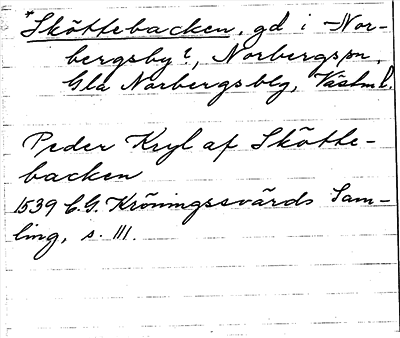 *Sköttebacken, gd i Nor-
bergsby?, Norbergs sn,
Gla Norbergs blg, Västml.
Peder Kryl af Skötte-
backen
1539 C.G. Kröningssvärds Sam-
ling, s. 111.